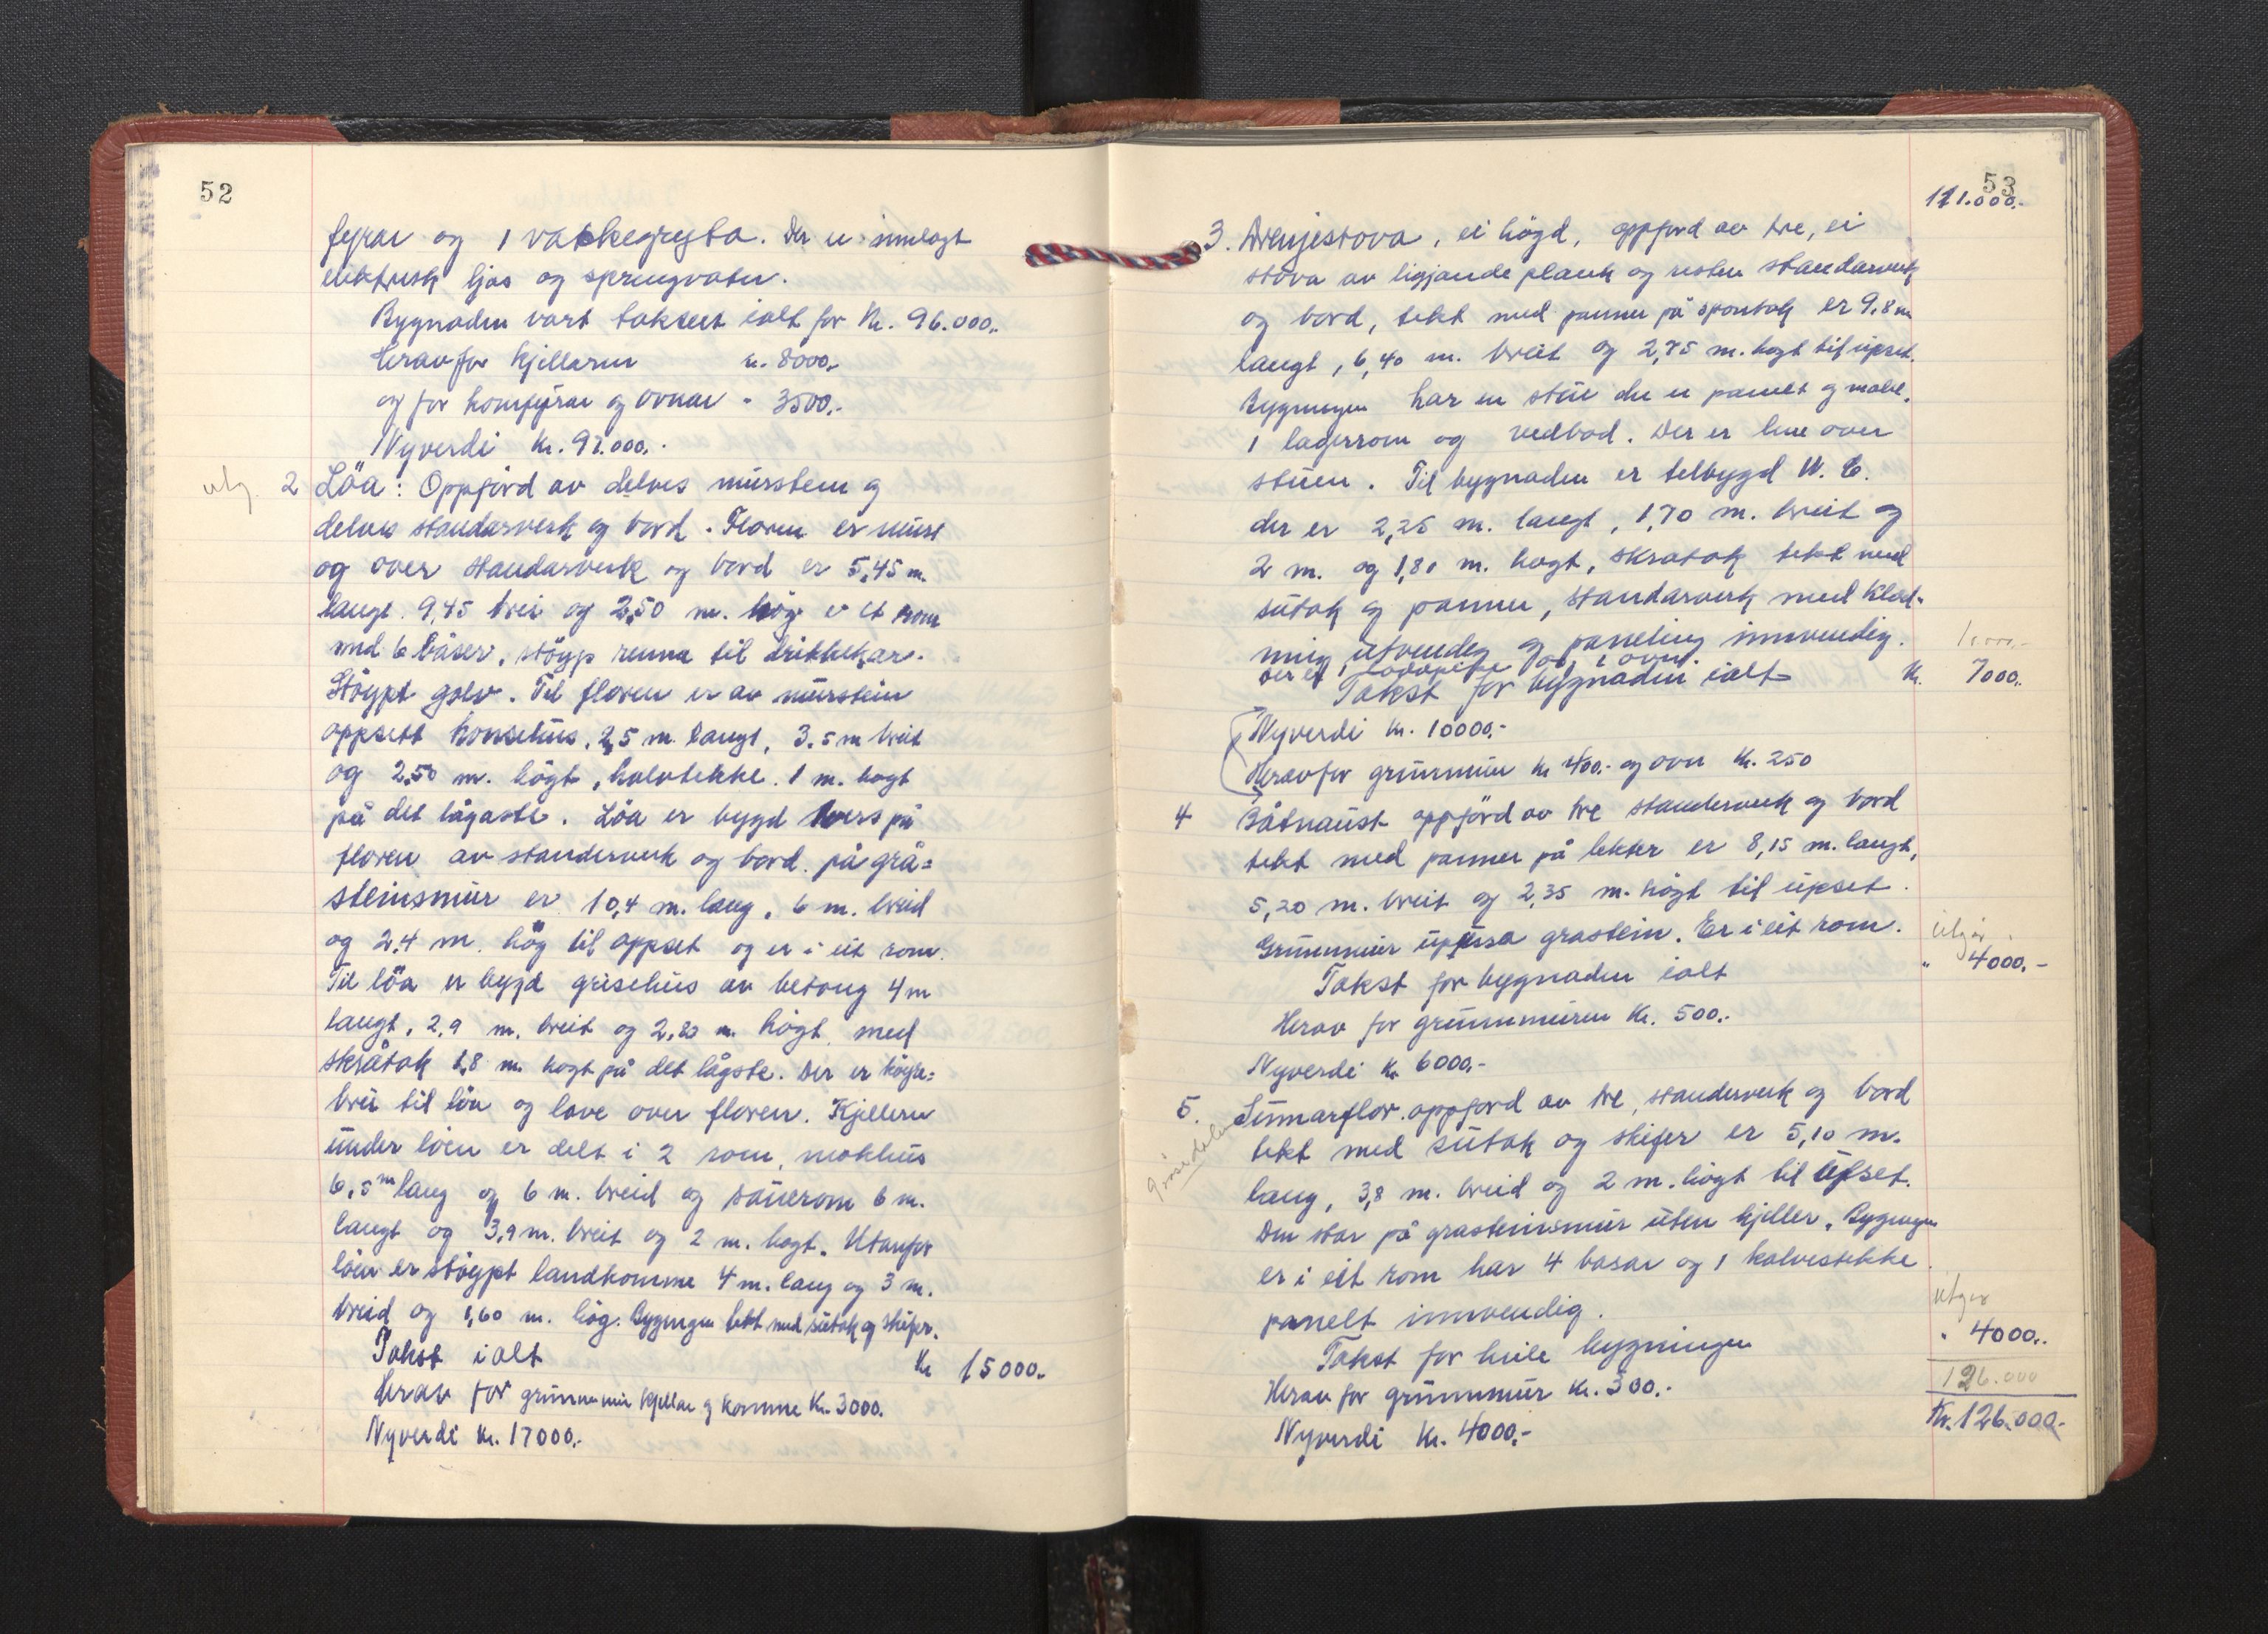 52
fyrar og 1 vaskegryta. Der er innlagt
elektrisk ljos og springvatn.
Bygnaden vart taksert ialt for Kr. 96.000,-
Herav for kjellaren kr. 8000,-
og for komfyrar og ovnar " 3500,-
Nyverdi Kr. 97.000,-
utg. 2 Löa: Oppförd av delvis murstein og
delvis standarverk og bord. Floren er murt
og over standarverk og bord er 5,45 m.
langt. 9,45 brei og 2,50 m. høg er et rom
med 6 båser, stöyp renne til drikkekar.
Stöypt golv. Til floren er av murstein
oppsett hönsehus, 2,5 m. langt, 3.5 m breit
og 2.50 m. högt, halvtekke. 1 m. hogt
på det lågaste. Löa er bygd tvers på
floren av standerverk og bord på grå=
steinsmur er 10,4 m. lang, 6 m. breid
og 2,4 m. hög til oppset og er i eit rom.
Til löa er bygd grisehus av betong 4 m
langt, 2,9 m. breit og 2,20 m. högt med
skråtak 1,8 m. hogt på det lågste. Der er köyre=
bru til löa og lave over floren. Kjelleren
under löen er delt i 2 rom, mokhus
6,5 m lang og 6 m. breid og sauerom 6 m.
langt og 3,9 m. breit og 2 m. hogt. Utanfor
löen er stöypt landkomme 4 m. lang og 3 m.
breid og 1,60 m. hög. Bygningen tekt med sutak og skifer.
Takst ialt Kr 15000.-
Herav for grunnmur kjellar og komme Kr. 3000.
Nyverdi Kr. 17000,-
53
111.000,-
3. Drengjestova, ei högd, oppförd av tre, ei
stova av liggjande plank og resten standarverk
og bord, tekt med panner på spontak er 9,8 m
langt, 6,40 m. breit og 2,75 m. hogt til upset.
Bygningen har en stue der er panelt og malt.
1 lagerrom og vedbod. Der er lem over
stuen. Til bygnaden er tilbygd W. C.
der er 2,25 m. langt, 1,70 m. breit og
2 m. og 1,80 m. hogt, skratak tekt med
sutak og panner, standarverk med kled-
ning utvendig og paneling innvendig. 1000,-
Der er 1 og 1 ovn.
Takst for bygnaden ialt Kr. 7000,-
Nyverdi Kr. 10000,-
Herav for grunnmur Kr 400,- og ovn Kr. 250
4 Båtnaust oppförd av tre standerverk og bord
tekt med panner på lekter er 8,15 m. langt,
5,20 m. breit og 2,35 m. högt til upset.
Grunnmur upussa grastein. Er i eit rom. Utgår
Takst for bygnaden ialt " 4000,-
Herav for grunnmuren Kr. 500,-
Nyverdi Kr 6000,-
5. Sumarflor. oppförd av tre, standerverk og bord
tekt med sutak og skifer er 5,10 m.
lang, 3,8 m. breid og 2 m. högt til upset.
Den star på grasteinsmur uten kjeller. Bygningen
er i eit rom har 4 basar og 1 kalvestekke
panelt innvendig. Utgår
Takst for heile bygningen " 4000,-
Herav for grunnmur Kr. 300.- 126.000
Nyverdi Kr. 4000,- Kr. 126.000,-